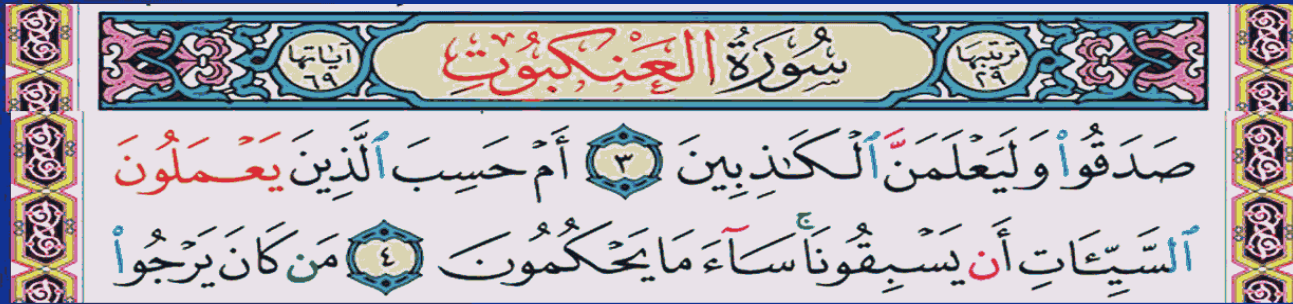 ترتيبها ٢٩ سُورَةُ العَنْكَبُوتِ آياتها ٦٩
صَدَقُوا۟ وَلَيَعْلَمَنَّ ٱلْكَـٰذِبِينَ ٣ أَمْ حَسِبَ ٱلَّذِينَ يَعْمَلُونَ
ٱلسَّيِّـَٔاتِ أَن يَسْبِقُونَا ۚ سَآءَ مَا يَحْكُمُونَ ٤ مَن كَانَ يَرْجُوا۟